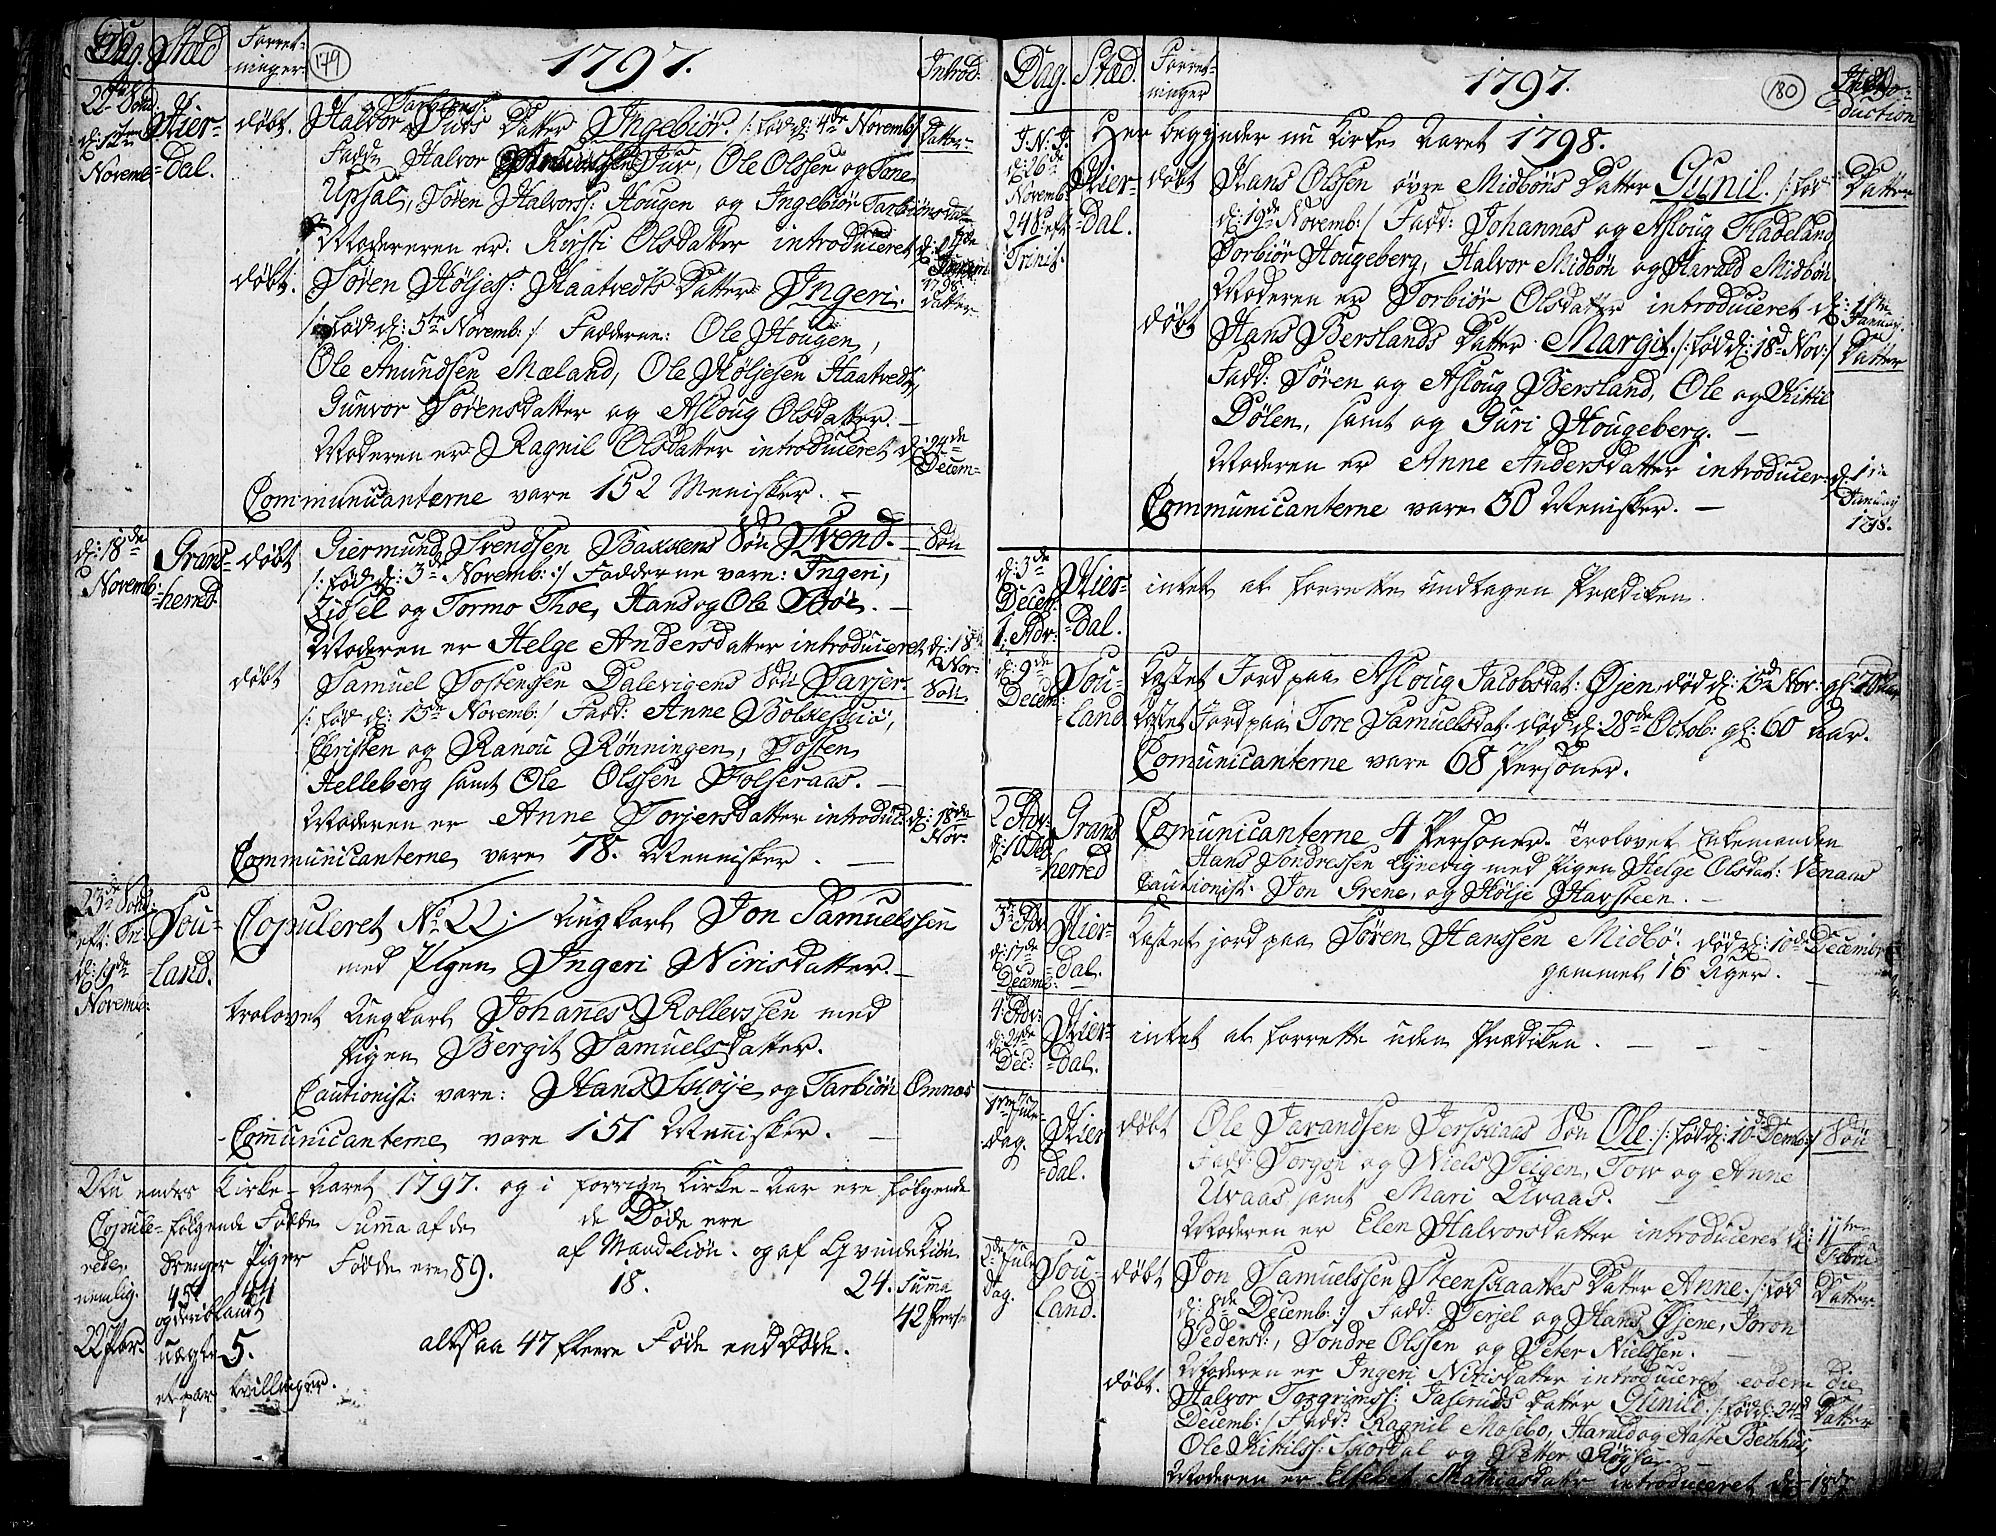 Dag. Stæd Forret-
ninger
179
1797.
Introd.
22de Sönd:
d: 12te
Novemb:
Hier-
dal.
döbt. Halvor Tarbiörns: Juvs Datter Ingebiör. /: föd d: 4de Novembr Datter
Fadd: Halvor Juv, Ole Olssen og Tone
Upsal, Sören Halvors: Hougen og Ingebiör Tarbiörnsdat
Moderen er: Kirsti Olsdatter introduceret
1798.
döbt. Sören Höljes: Haatvedts Datter Ingeri. Datter
/: föd d: 5te Novemb: :/ Fadderne: Ole Hougen,
Ole Amundsen Mæland, Ole Höljesen Haatvedt,
Gunvor Sörensdatter og Asloug Olsdatter. -
Moderen er Ragnil Olsdatter introduceret d: 24de
Decem-
Communicanterne vare 152 Menisker. -
d: 18de
Novemb:
Grans-
herred.
döbt Giermund Svendsen Bakkens Sön Svend. - Sön
/: föd d: 3de Novemb: :/ Fadderne vare: Ingeri,
Lidsel og Tormo Thoe, Hans og Ole Böe. -
Moderen er Helge Andersdatter introduceret d: 18de
Nov:
döbt Samuel Tostenssen Dalevigens Sön Tarjer. Sön
/: föd d: 15de Novemb: :/ Fadd: Anne Bolkesjö,
Christen og Ranou Rönningen, Tosten
Helleberg samt Ole Olssen Folseraas. -
Moderen er Anne Torjersdatter introduc: d: 18de
Nov:
Communicanterne vare 78. Mennisker. -
23de Sönd:
eft: Tri
d: 19de
Novemb:
Sou-
land.
Copuleret No 22 :/ Ungkarl Jon Samuelssen
med Pigen Ingeri Nirisdatter. -
trolovet Ungkarl Johannes Rollevssen med
Pigen Bergit Samuelsdatter.
Cautionist: vare: Hans Skoije og Tarbiön Omnæs
Communicanterne vare 151 Mennisker. -
Nu endes Kirke-Aaret 1797. og i forrige Kirke-Aar ere fölgende
Copule-
rede
nemlig.
22 Par.
fölgende Födde
Drenger Piger
45 44
og deriblandt
uægte 5.
et par tvillinger.
Summa af de
Födde ere 89.
de Döde ere
af Mandkiön. og af Qvindekiön
18. 24. Summa
42 Pers:
altsaa 47 fleere Föde end Döde.
Dag. Stæd. Forret-
ninger
1797.
180
Intro-
duction
J. N. J. Her begynder nu Kirke Aaret 1798.
d: 26de
Novemb:
24 S: eft
Trinit.
Hier-
dal.
döbt Hans Olssen övre Midböns Datter Gunil. /: föd Datter
d: 19de Novemb: / Fadd: Johannes og Asloug Fladeland
Torbiör Hougeberg, Halvor Midbön og Harald Midbön
Moderen er Torbiör Olsdatter introduceret d: 1te
Januarj.
döbt Hans Berslands Datter Margit. /: föd d: 18de Nov: / Datter
Fadd: Sören og Asloug Bersland, Ole og Kittil
Dölen, samt og Guri Hougeberg. -
Moderen er Anne Andersdatter introducer: d: 1te
Januarij
1798.
Communicanterne vare 30 Menisker. -
d: 3de
Decem:
1. Adv:
Hier-
dal.
intet at forrette undtagen Prædiken.
d: 9de
Decemb:
Sou-
land
Kastet Jord paa Asloug Jacobsdat: Øjen, död d: 15de Nov: gl: 70 Aar
Kastet Jord paa Tore Samuelsdat: död d: 28de Octob: gl: 60 aar.
Comunicanterne vare 68 Personer.
2 Adv:
d: 10 Dec
Grans
herred
Comunicanterne 4 Personer. Trolovet Enkemanden
Hans Sondressen med Pigen Helge Olsdat: Venaas
Cautionist: Jon Grene, og Hölje Havsteen. -
3de Adv
d: 17de
Decemb:
Hier-
dal.
Kastet jord paa Sören Hanssen Midbö. död d: 10de Decembr
gammel 16 Uger. -
4. Adv:
d: 24de
Dec:
Hier-
dal.
intet at forrette uden Prædiken. - - -
1te Jule-
dag.
Hier
dal.
döbt Ole Jarandsen Jerskaas Sön Ole. /: föd d: 10de Decemb: / Sön
Fadd: Torgon og Niels Teigen, Tov og Anne
Uvaas samt Mari Uvaas. -
Moderen er Elen Halvorsdatter introduceret d: 11te
Febru
2de Jule
dag.
Sou-
land.
döbt Jon Samuelssen Steenskaattes Datter Anne. /: föd Datter
d: 8de Decemb: :/ Fadd: Terjel og Hans Øjene, Joron
Pedersd:, Sondre Olssen og Peter Nielssen. -
Moderen er Ingeri Nirisdatter introduceret eodem die
döbt. Halvor Torgrims: Jaseruds Datter Gunild. /: föd d: 24de Datter
Decemb: / Fadd: Ragnil Mosebö, Harald og Aaste Bechhus
Ole Kittils: Skordal og Petter Röysland. -
Moderen er Elsebet Mathiasdatter introduceret d: 18de